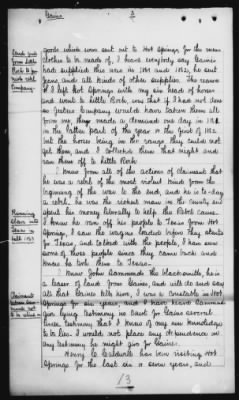 Gaines
3
goods which were sent out to Hot Springs for the same
clothes to be made of, I have everybody say Gaines
had supplied this was in 1861 and 1862, he sent
guns and all kinds of other supplies. The reason
I left Hot Springs with my six head of horses
and went to Little Rock, was that if I had not done
so Gaines Company would have taken them all
from me, they made a demand one day in 1862
in the latter part of the year or the first of 1862
but the horses being in the range they could not
get them, and I collected them that night and
ran them off to Little Rock.
I know from all of the actions of claimant that
he was a rebel of the most violent kind from the
beginning of the war to the end, and he is to-day
a rebel, he was the richest man in the county and
spent his money liberally to help the Rebel cause.
I know he ran off his people to Texas from Hot
Springs, I saw the wagons loaded before they started
for Texas, and talked with the people, I have seen
some of those people since they came back and
know he took them to Texas.
I know John Sammonds the blacksmith, he is
a leaser of land from Gaines, and will do and say
all that Gaines tells him, I was a constable in Hot
Springs for six years, and I have heard Sammonds
give lying testimony in Court for Gaines several
times, testimony that I know of my own knowledge
to be lies. I would not place any dependence on
any testimony he might give for Gaines.
Henry C. Caldwell has been visiting Hot
Springs for the last six or seven years, and
from Little
Rock to
Company.
Running
slaves into
Texas in
1863
Claimant
not
to be relied on
13